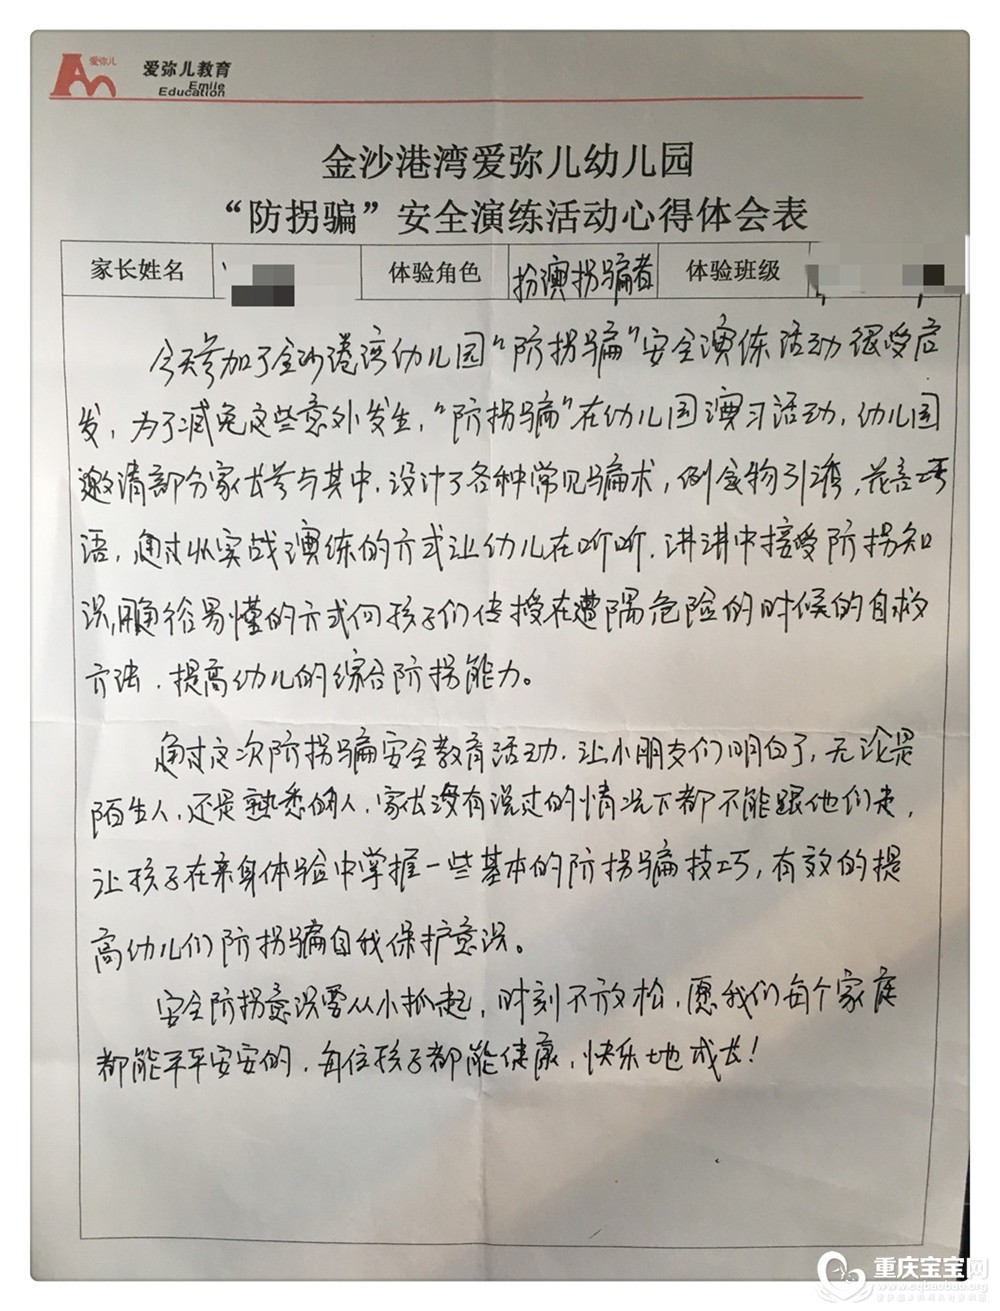 爱弥儿
爱弥儿教育
Emile
Education
金沙港湾爱弥儿幼儿园
“防拐骗”安全演练活动心得体会表
家长姓名 体验角色 扮演拐骗者 体验班级
今天参加了金沙港湾幼儿园“防拐骗”安全演练活动很受启
发，为了减免这些意外发生，“防拐骗”在幼儿园演习活动，幼儿园
邀请部分家长参与其中，设计了各种常见骗术，例食物引诱，花言巧
语，通过以实战演练的方式让幼儿在听听，讲讲中接受防拐知
识，用通俗易懂的方式向孩子们传授在遭遇危险的时候的自救
方法，提高幼儿的综合防拐能力。
通过这次防拐骗安全教育活动，让小朋友们明白了，无论是
陌生人，还是熟悉的人，家长没有说过的情况下都不能跟他们走，
让孩子在亲身体验中掌握一些基本的防拐骗技巧，有效的提
高幼儿们防拐骗自我保护意识。
安全防拐意识要从小抓起，时刻不放松，愿我们每个家庭
都能平平安安的，每位孩子都能健康，快乐地成长！
重庆宝宝网
www.cqbaobao.org